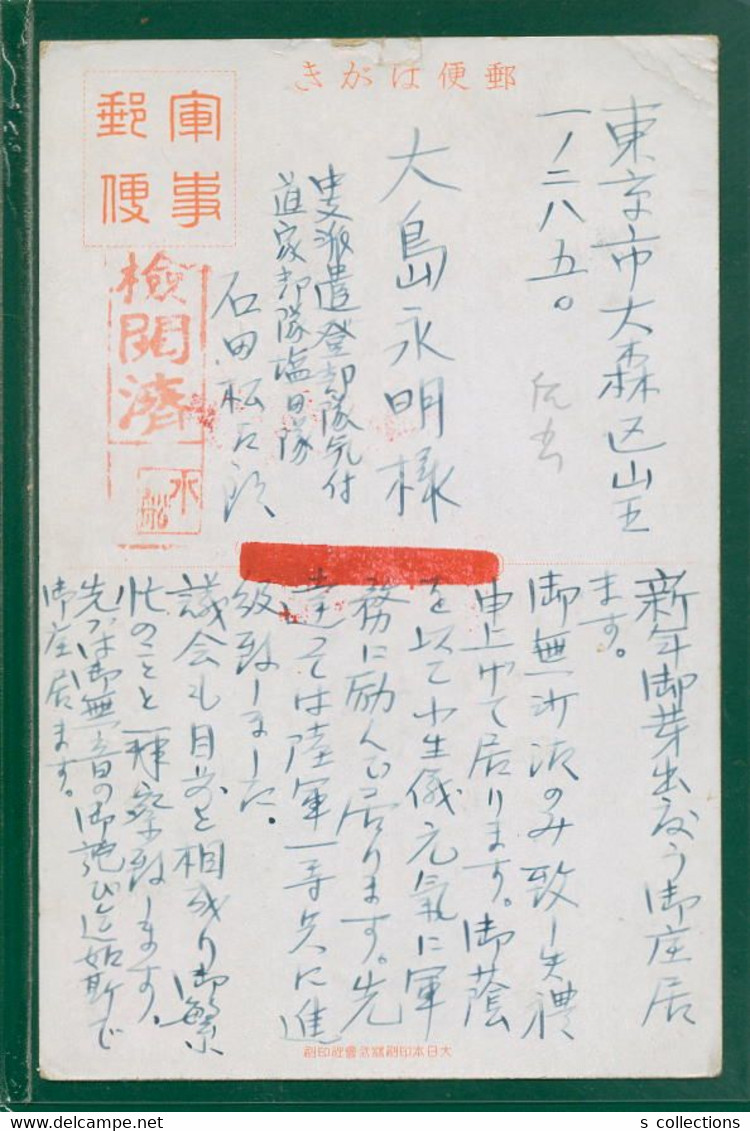 郵便はがき
軍事
郵便
検
閲
濟
水
東京市大森区山王
一ノ二八五〇
大島永明様
支派遣登部隊気付
道家部隊塩田隊
石田松五郎
新年御芽出度う御座居
ます。
御無沙汰のみ致し失禮
申上げて居ります。御蔭
を以て小生儀元氣に軍
務に励んで居ります。先
達つては陸軍一等兵に進
級致しました。
議会も目前と相成り御繁
忙のことと拝察致します。
先づは御無音の御詫び迄如斯で
御座居ます。
大日本印刷株式會社印刷
s collections